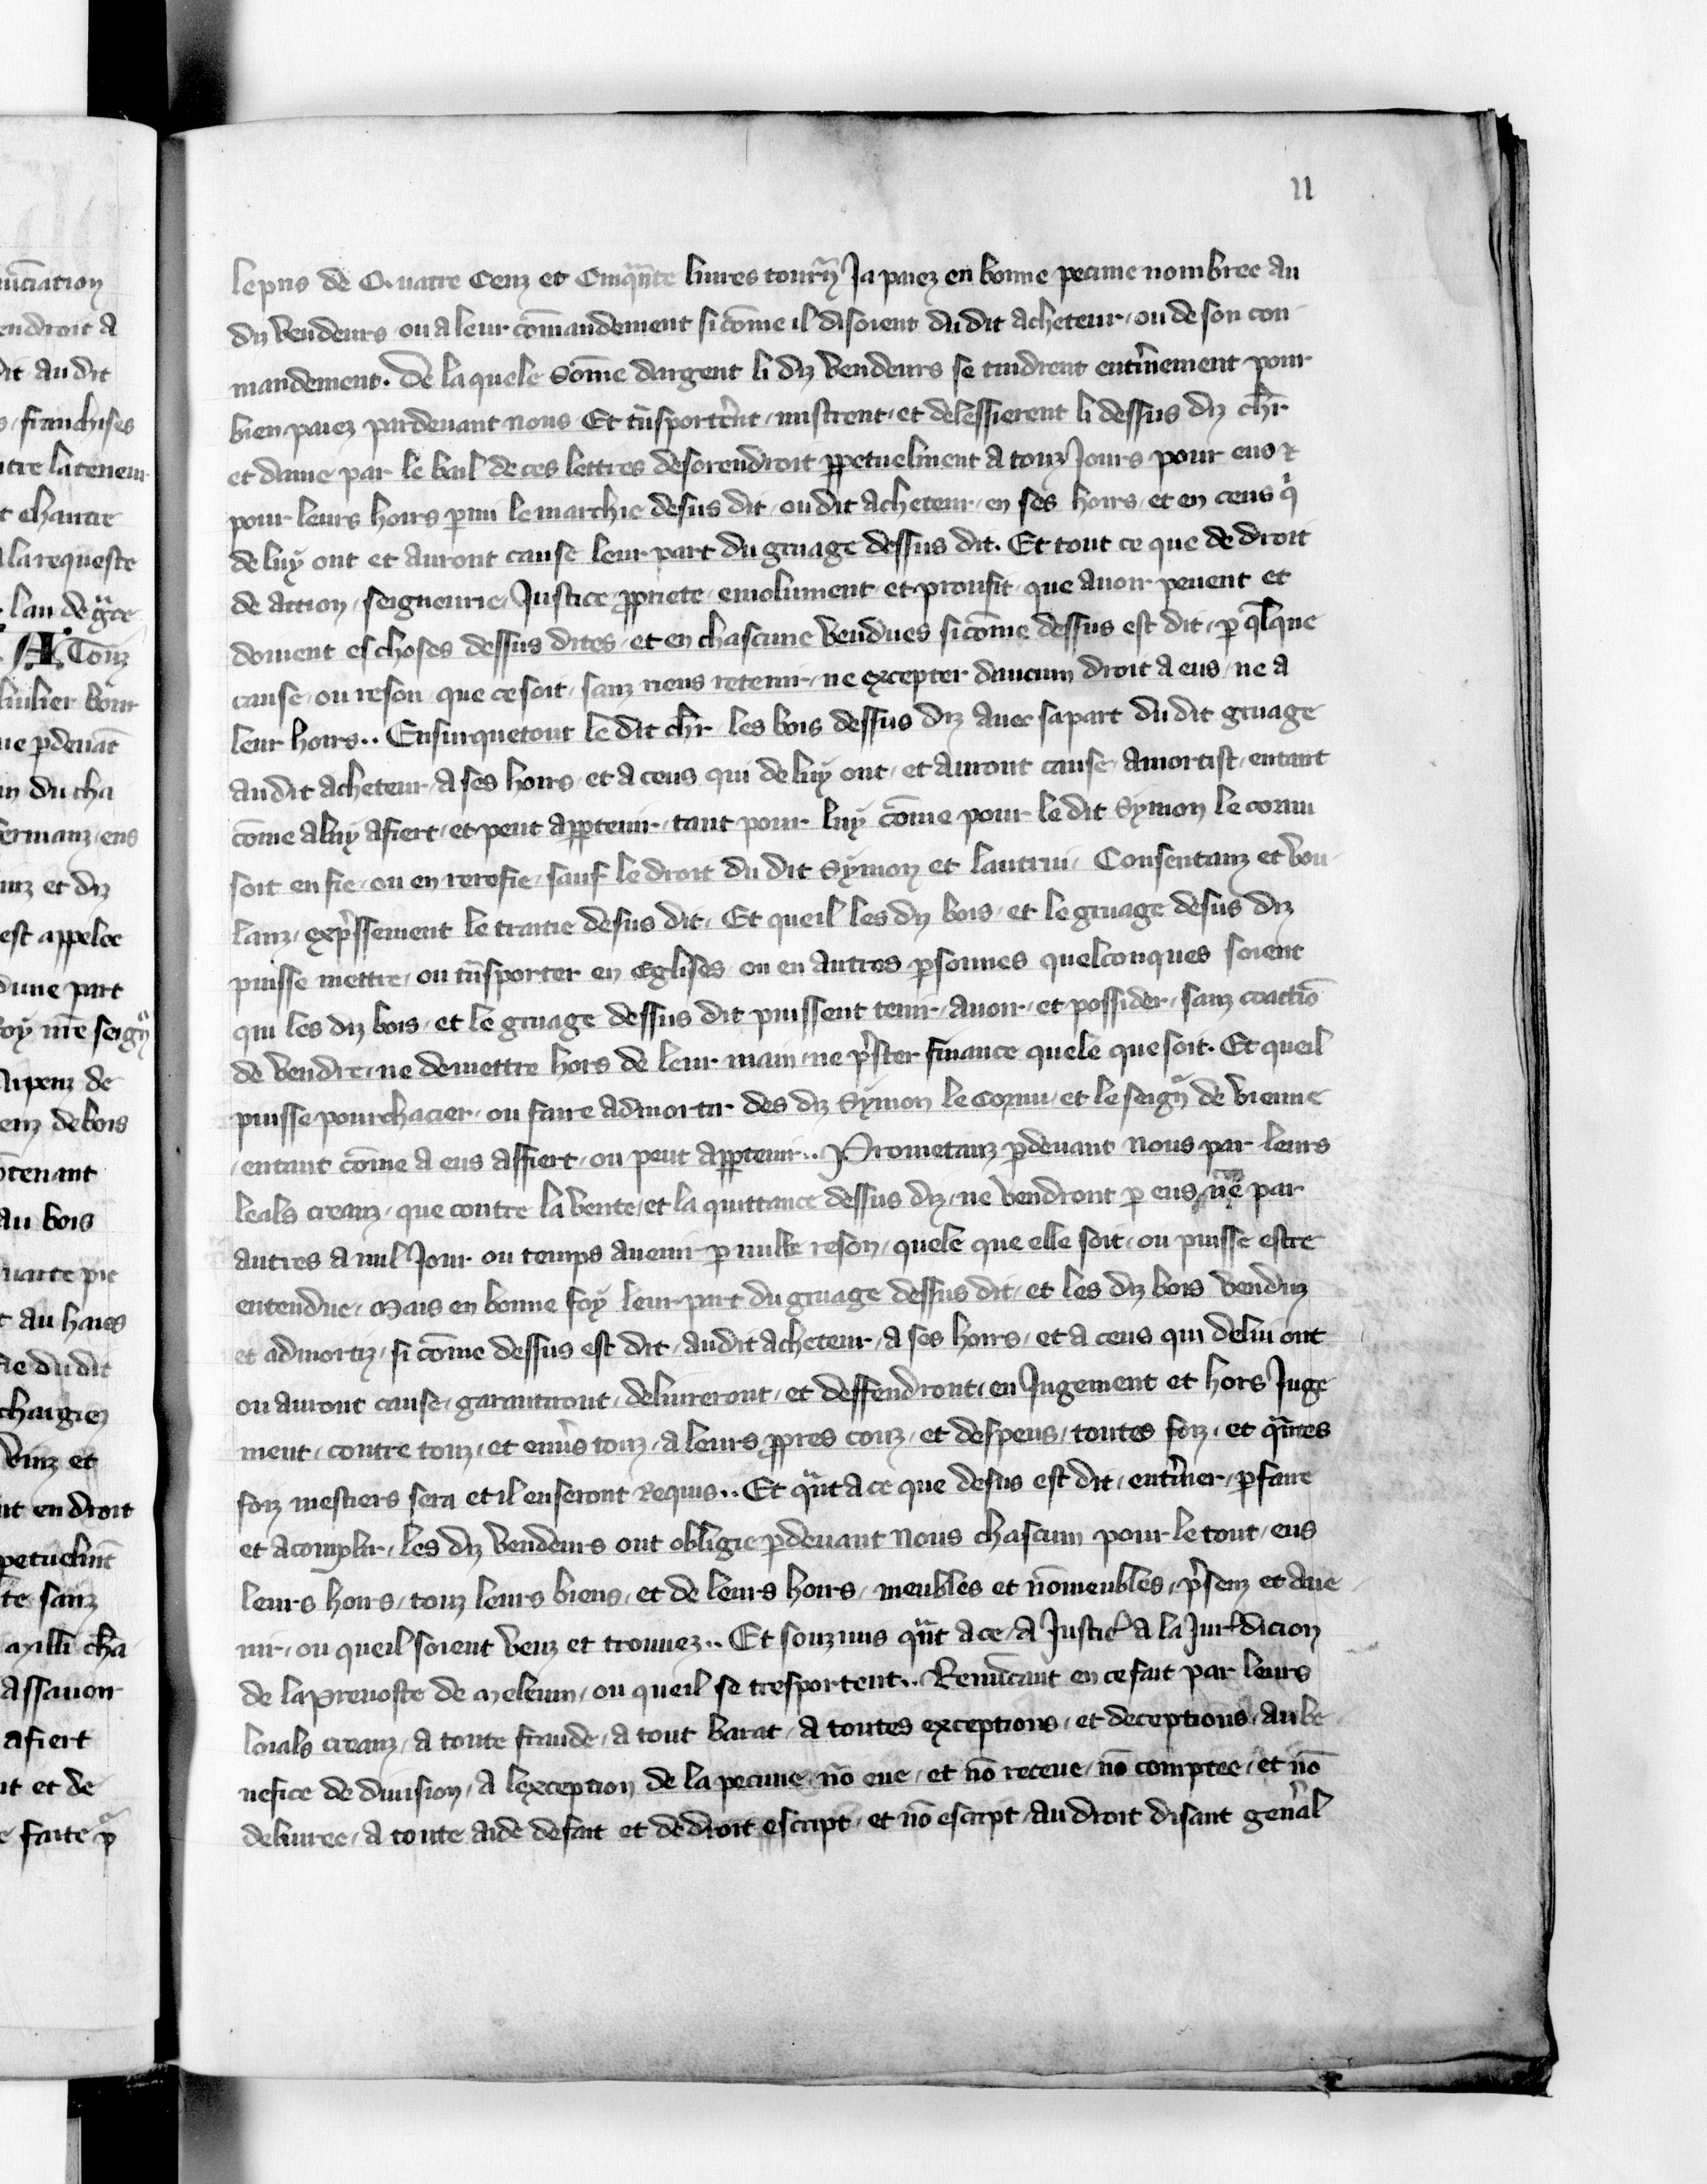 11
le pris de Quatre Cenz et Cinqᵃnte liures tourñ Ja paiez en bonne pecune nombree au
diz vendeurs ou a leur cōmandement si cōme il disoient du dit acheteur, ou de son con
mandement. De la quele sōme dargent li diz vendeurs se tindrent entͥnement pour
bien paiez pardeuant nous Et tᵃnsportͤrnt, mistrent, et delessierent li dessus diz chr̄
et dame par le bail de ces lettres desorendroit ꝑpetuelment a touz Jours pour eus ⁊
pour leurs hoirs ꝑmi le marchie desus dit, ou dit acheteur, en ses hoirs, et en ceus qͥ
de luy ont et auront cause leur part du gruage dessus dit. Et tout ce que de droit
de action, seigneurie, Justice ꝓpriete, emolument, et proufit, que auoir peuent et
doiuent es choses dessus dites, et en chascune vendues si cōme dessus est dit, ꝑ qͣlque
cause, ou reson, que ce soit, sanz riens retenir, ne excepter daucun droit a eus, ne a
leur hoirs.. Ensurquetout le dit chr̄ les bois dessus diz auec sa part du dit gruage
au dit acheteur, a ses hoirs, et a ceus qui de luy ont, et auront cause, amortist, entant
cōme a luy afiert, et peut apꝑtenir, tant pour luy cōme pour le dit Symon le cornu
soit en fie, ou en rerefie, sauf le droit du dit Symon et lautrui, Consentanz et vou
lanz, expͤssement le traitie desus dit, Et queil les diz bois, et le gruage desus diz
puisse mettre, ou tᵃnsporter en Eglises, ou en autres ꝑsonnes quelconques soient
qui les diz bois, et le gruage dessus dit puissent tenir, auoir, et possider, sanz coactiō
de vendre, ne de mettre hors de leur main, ne pͤster finance quele que soit. Et queil
puisse pourchacier, ou faire admortir des diz Symon le Cornu, et le seigñ de vienne
, entant cōme a eus affiert, ou peut apꝑtenir.. Prometanz ꝑdeuant nous par leurs
leals creanz, que contre la vente, et la quittance dessus diz, ne vendront ꝑ eus, ne par
autres a nul Jour ou temps auenir ꝑ nulle reson, quele que elle soit, ou puisse estre
entendue, Mais en bonne foy leur part du gruage dessus dit, et les diz bois venduz
et admortiz, si cōme dessus est dit, audit acheteur, a ses hoirs, et a ceus qui de lui ont
ou auront cause, garantiront, deliureront, et deffendront, en Jugement et hors Juge
ment, contre touz, et enuͤs touz, a leurs ꝓpres couz, et despens, toutes foiz, et qᵃntes
foiz mestiers sera et il en seront requis.. Et qᵃnt a ce que desus est dit, entͥner, ꝑfaire
et acomplir, les diz vendeurs ont obligie ꝑdeuant nous chascun pour le tout, eus
leurs hoirs, touz leurs biens, et de leurs hoirs, meubles et nōmeubles, pͤsenz et aue
nir, ou queil soient veuz et trouuez.. Et souzmis qᵃnt a ce, a Justicͤ a la Jurͥdicion
de la Preuoste de Meleun, ou queil se tresportent.. Renūcant en ce fait par leurs
loials creanz, a toute fraude, a tout barat, a toutes exceptions, et deceptions, au be
nefice de diuision, a lexception de la pecune, nō eue, et nō receue, nō comptee, et nō
deliuree, a toute aide de fait et de droit escript, et nō escript, au droit disant genͤal